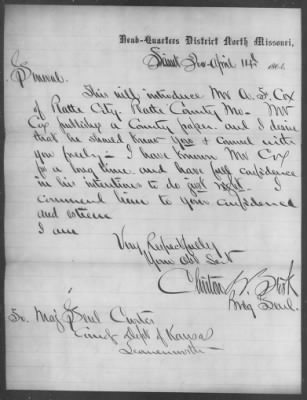 Head-Quarters District North Missouri,
Saint Jo April 14th 1864.
General.
This will introduce Mr A. F. Cox
of Platte City. Platte County Mo. Mr
Cox publishes a County paper. and I desire
that he should know you & counsel with
you freely. I have known Mr Cox
for a long time and have full confidence
in his intentions to do just right. I
commend him to your confidence
and esteem
I am
Very Respectfully
Your Obt Servt
Clinton B. Fisk
Brig Genl.
To Maj Genl Curtis
Comdg Dept of Kansas
Leavenworth